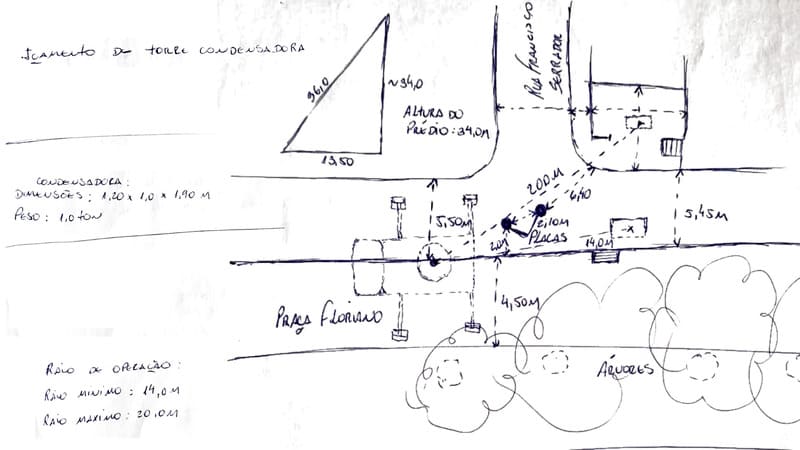 IÇAMENTO DE TORRE CONDENSADORA
36,0
~34,0
13,50
ALTURA DO
PRÉDIO: 34,0M
RUA FRANCISCO
SERRADOR
CONDENSADORA:
DIMENSÕES: 1,20 x 1,0 x 1,90 M
PESO: 1,0 TON
5,50M
200M
6,40
2,10M
PLACAS
14,0M
X
5,45M
4,50M
PRAÇA FLORIANO
ÁRVORES
RAIO DE OPERAÇÃO:
RAIO MINIMO: 14,0M
RAIO MAXIMO: 20,0M